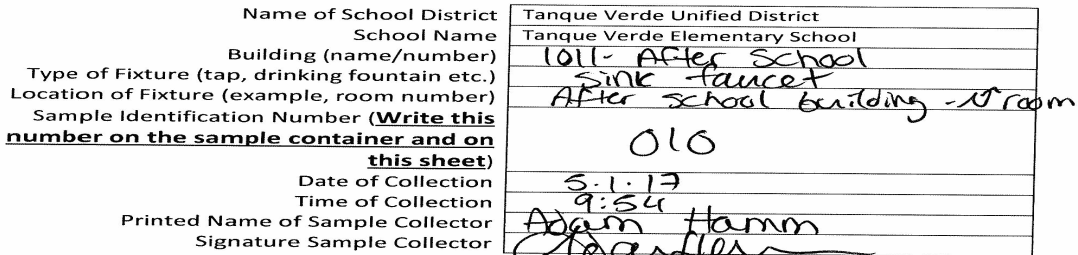 Name of School District Tanque Verde Unified District
School Name Tanque Verde Elementary School
Building (name/number) 1011- After School
Type of Fixture (tap, drinking fountain etc.) Sink faucet
Location of Fixture (example, room number) After school building - room
Sample Identification Number (Write this
number on the sample container and on
this sheet) 010
Date of Collection 5.1.17
Time of Collection 9:54
Printed Name of Sample Collector Adam Hamm
Signature Sample Collector